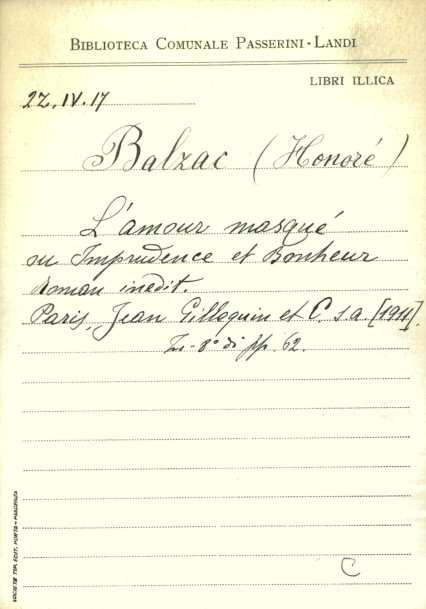 BIBLIOTECA COMUNALE PASSERINI-LANDI
LIBRI ILLICA
22.IV.17
Balzac (Honoré)
L'amour masqué
ou Imprudence et Bonheur
roman inédit.
Paris, Jean Gilloquin et C. s.a. [1911].
In-8° di pp. 62.
SOCIETÀ TIP. EDIT. PORTA - PIACENZA
C